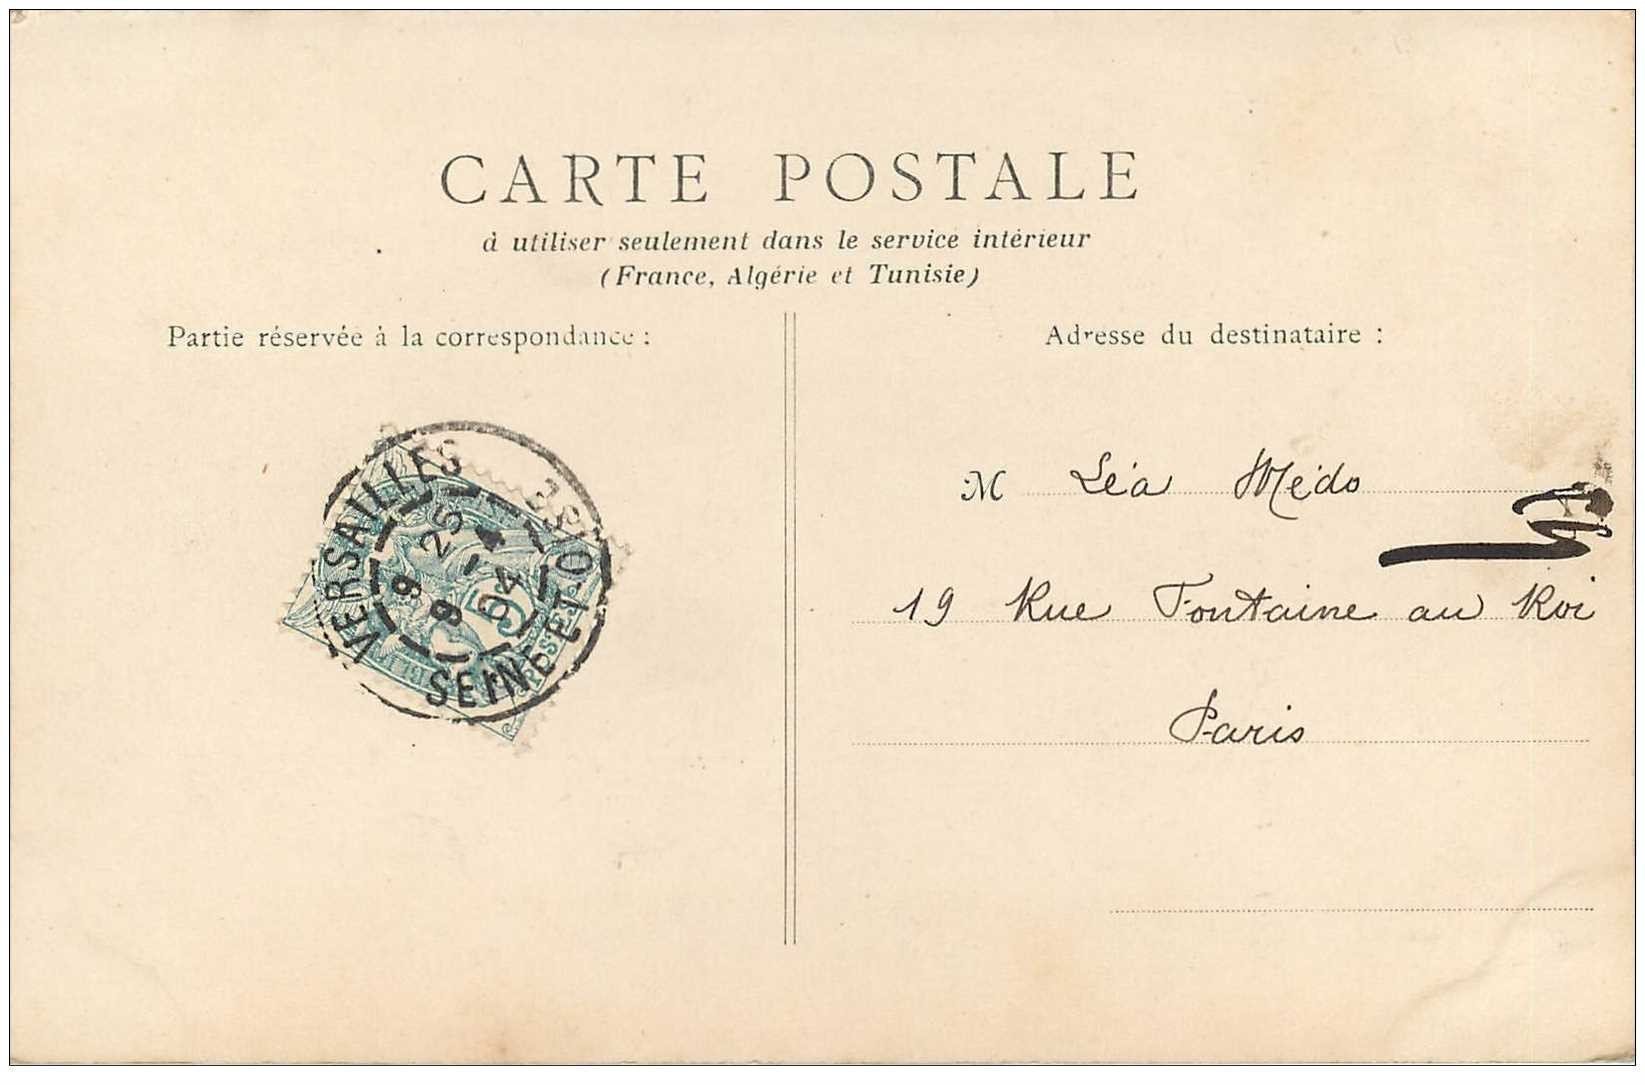 CARTE POSTALE
à utiliser seulement dans le service intérieur
(France, Algérie et Tunisie)
Partie réservée à la correspondance :
Adresse du destinataire :
M Léa Médo
19 Rue Fontaine au Roi
Paris
VERSAILLES
9 25
9 -4
04
SEINE-ET-OISE
5